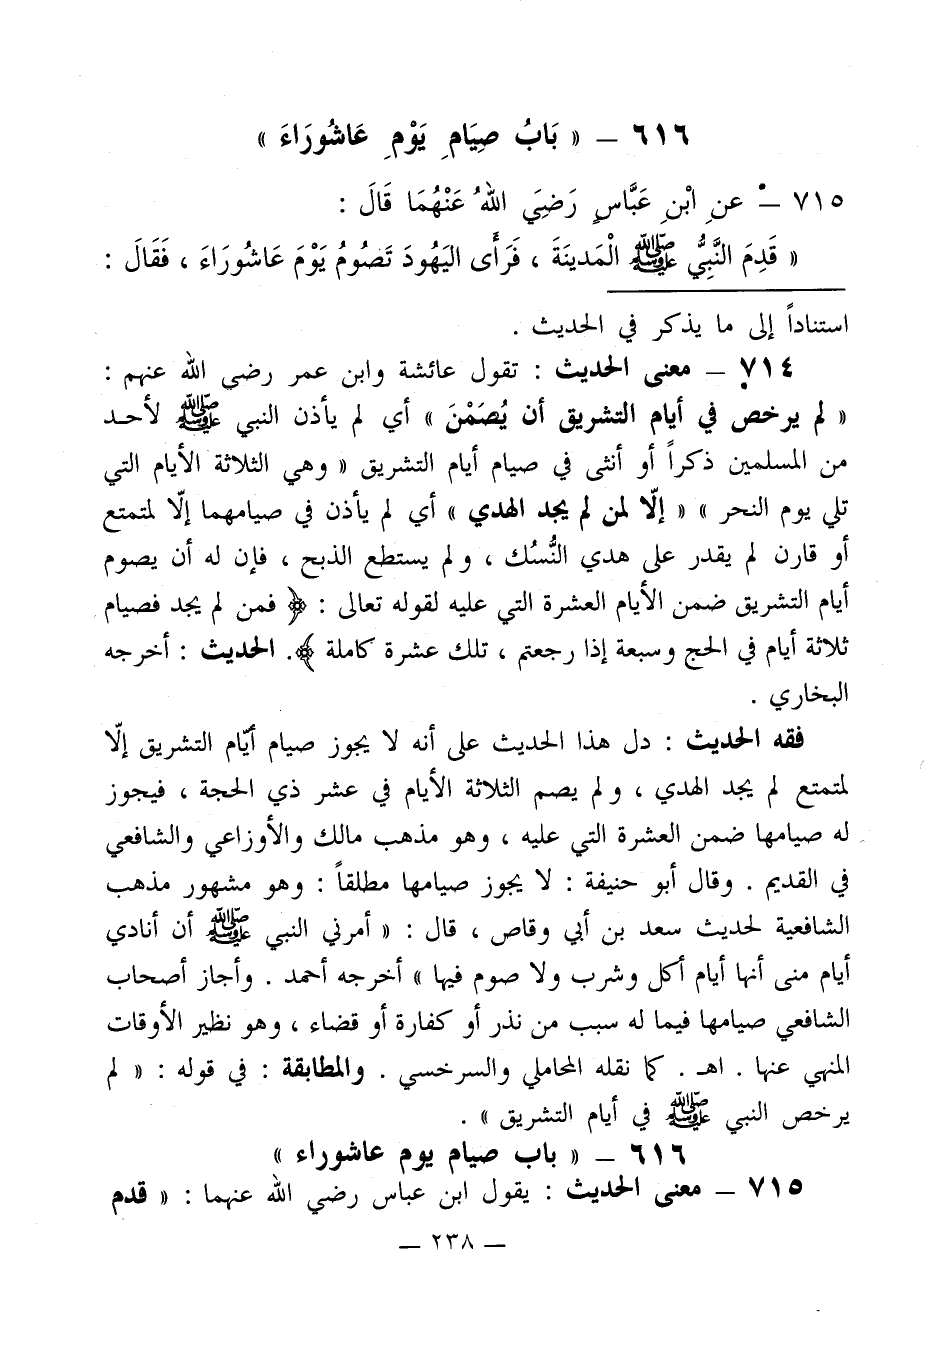 ٦١٦ – « بَابُ صِيَامِ يَوْمِ عَاشُورَاءَ »
٧١٥ – عنِ ابْنِ عَبَّاسٍ رَضِيَ اللهُ عَنْهُمَا قَالَ :
« قَدِمَ النَّبِيُّ ﷺ الْمَدِينَةَ ، فَرَأَى اليَهُودَ تَصُومُ يَوْمَ عَاشُورَاءَ ، فَقَالَ :
استناداً إلى ما يذكر في الحديث .
٧١٤ – معنى الحديث : تقول عائشة وابن عمر رضي الله عنهم :
« لم يرخص في أيام التشريق أن يُصَمْنَ » أي لم يأذن النبي ﷺ لأحد
من المسلمين ذكراً أو أنثى في صيام أيام التشريق « وهي الثلاثة الأيام التي
تلي يوم النحر » « إلّا لمن لم يجد الهدي » أي لم يأذن في صيامهما إلّا لمتمتع
أو قارن لم يقدر على هدي النُّسُك ، ولم يستطع الذبح ، فإن له أن يصوم
أيام التشريق ضمن الأيام العشرة التي عليه لقوله تعالى : ﴿ فمن لم يجد فصيام
ثلاثة أيام في الحج وسبعة إذا رجعتم ، تلك عشرة كاملة ﴾. الحديث : أخرجه
البخاري .
فقه الحديث : دل هذا الحديث على أنه لا يجوز صيام أيّام التشريق إلّا
لمتمتع لم يجد الهدي ، ولم يصم الثلاثة الأيام في عشر ذي الحجة ، فيجوز
له صيامها ضمن العشرة التي عليه ، وهو مذهب مالك والأوزاعي والشافعي
في القديم . وقال أبو حنيفة : لا يجوز صيامها مطلقاً : وهو مشهور مذهب
الشافعية لحديث سعد بن أبي وقاص ، قال : « أمرني النبي ﷺ أن أنادي
أيام منى أنها أيام أكل وشرب ولا صوم فيها » أخرجه أحمد . وأجاز أصحاب
الشافعي صيامها فيما له سبب من نذر أو كفارة أو قضاء ، وهو نظير الأوقات
المنهي عنها . اهـ . كما نقله المحاملي والسرخسي . والمطابقة : في قوله : « لم
يرخص النبي ﷺ في أيام التشريق » .
٦١٦ – « باب صيام يوم عاشوراء »
٧١٥ – معنى الحديث : يقول ابن عباس رضي الله عنهما : « قدم
– ٢٣٨ –